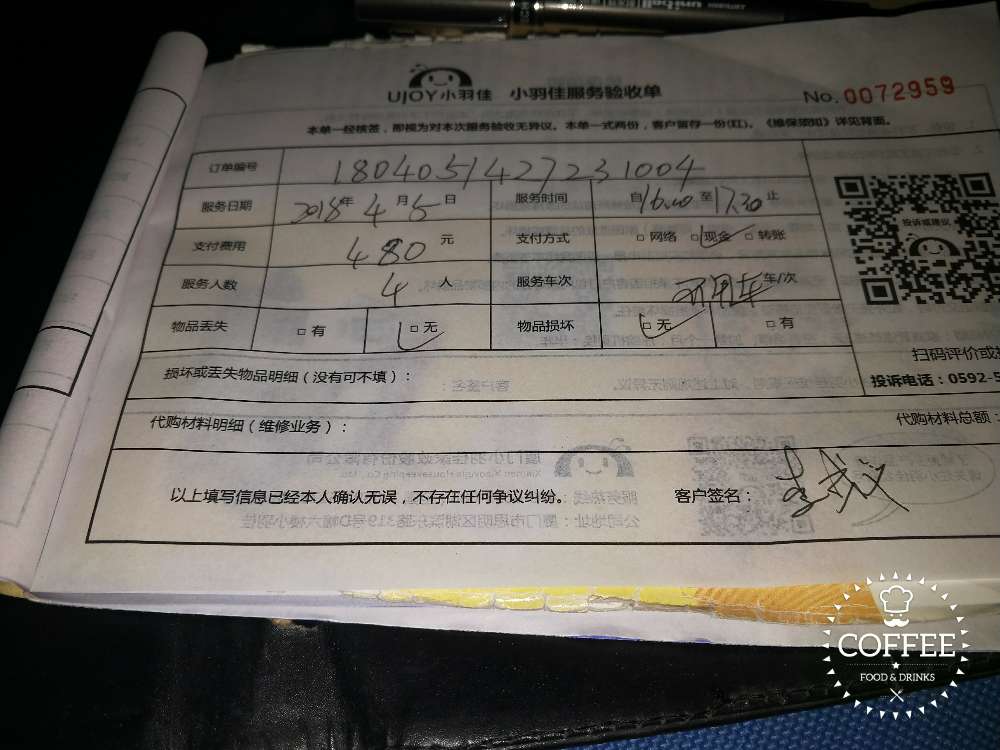 uniball
UJOY小羽佳 小羽佳服务验收单 No. 0072959
本单一经核签,即视为对本次服务验收无异议。本单一式两份,客户留存一份(红)。《维保须知》详见背面。
订单编号 1804051427231004
服务日期 2018年4月5日 服务时间 自16:00至17:30止
支付费用 480元 支付方式 □网络 □现金 □转账
服务人数 4人 服务车次 车/次
物品丢失 □有 □无 物品损坏 □无 □有
投诉或建议
扫码评价或
损坏或丢失物品明细(没有可不填): 投诉电话:0592-5
代购材料明细(维修业务): 代购材料总额:
以上填写信息已经本人确认无误,不存在任何争议纠纷。 客户签名:
COFFEE
FOOD & DRINKS